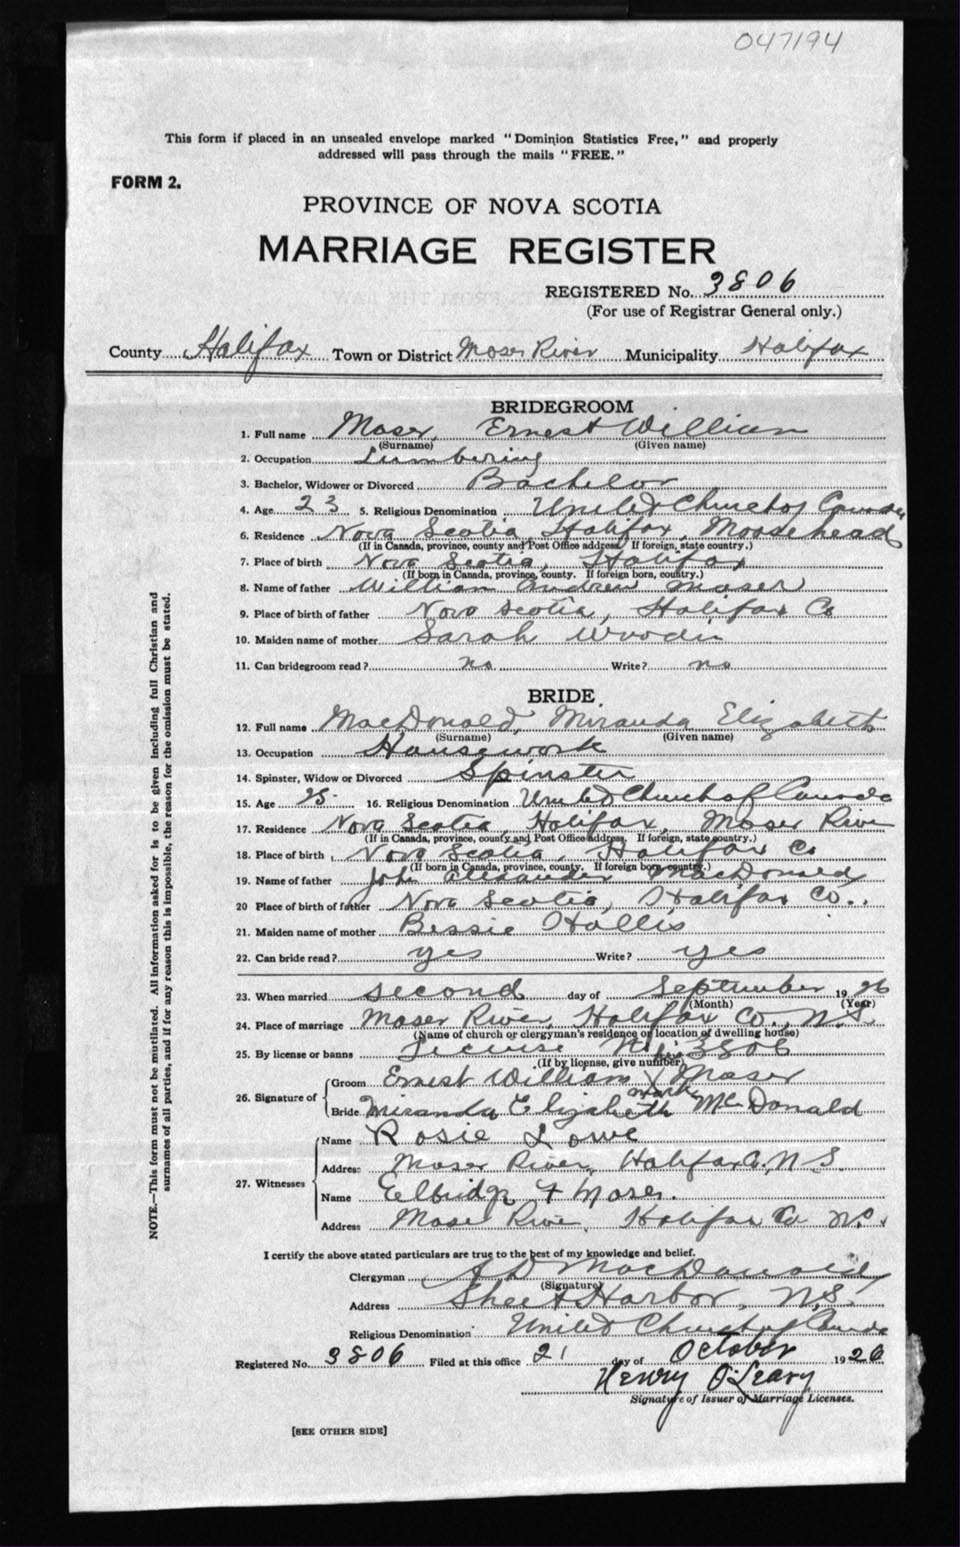 047194
This form if placed in an unsealed envelope marked "Dominion Statistics Free," and properly
addressed will pass through the mails "FREE."
FORM 2.
PROVINCE OF NOVA SCOTIA
MARRIAGE REGISTER
REGISTERED No. 3806
(For use of Registrar General only.)
County Halifax Town or District Moser River Municipality Halifax
BRIDEGROOM
1. Full name Moser, Ernest William
(Surname) (Given name)
2. Occupation Lumbering
3. Bachelor, Widower or Divorced Bachelor
4. Age 23 5. Religious Denomination United Church of Canada
6. Residence Nova Scotia, Halifax, Moosehead
(If in Canada, province, county and Post Office address. If foreign, state country.)
7. Place of birth Nova Scotia, Halifax
(If born in Canada, province, county. If foreign born, country.)
8. Name of father William Andrew Moser
9. Place of birth of father Nova Scotia, Halifax Co
10. Maiden name of mother Sarah Woodin
11. Can bridegroom read? no Write? no
BRIDE
12. Full name MacDonald, Miranda Elizabeth
(Surname) (Given name)
13. Occupation Housework
14. Spinster, Widow or Divorced Spinster
15. Age 25 16. Religious Denomination United Church of Canada
17. Residence Nova Scotia, Halifax, Moser River
(If in Canada, province, county and Post Office address. If foreign, state country.)
18. Place of birth Nova Scotia, Halifax Co
(If born in Canada, province, county. If foreign born, country.)
19. Name of father John Alexander MacDonald
20 Place of birth of father Nova Scotia, Halifax Co.
21. Maiden name of mother Bessie Hollis
22. Can bride read? yes Write? yes
23. When married second day of September 1926
(Month) (Year)
24. Place of marriage Moser River, Halifax Co., N.S.
(Name of church or clergyman's residence or location of dwelling house)
25. By license or banns License No. 3806
(If by license, give number)
his
26. Signature of Groom Ernest William X Moser
mark
Bride Miranda Elizabeth McDonald
27. Witnesses Name Rosie Lowe
Address Moser River, Halifax Co. N.S.
Name Elbridge F Moser.
Address Moser River, Halifax Co N.S.
I certify the above stated particulars are true to the best of my knowledge and belief.
Clergyman A D MacDonald
(Signature)
Address Sheet Harbor, N.S.
Religious Denomination United Church of Canada
Registered No. 3806 Filed at this office 21 day of October 1926
Henry O'Leary
Signature of Issuer of Marriage Licenses.
[SEE OTHER SIDE]
NOTE.—This form must not be mutilated. All information asked for is to be given including full Christian and
surnames of all parties, and if for any reason this is impossible, the reason for the omission must be stated.